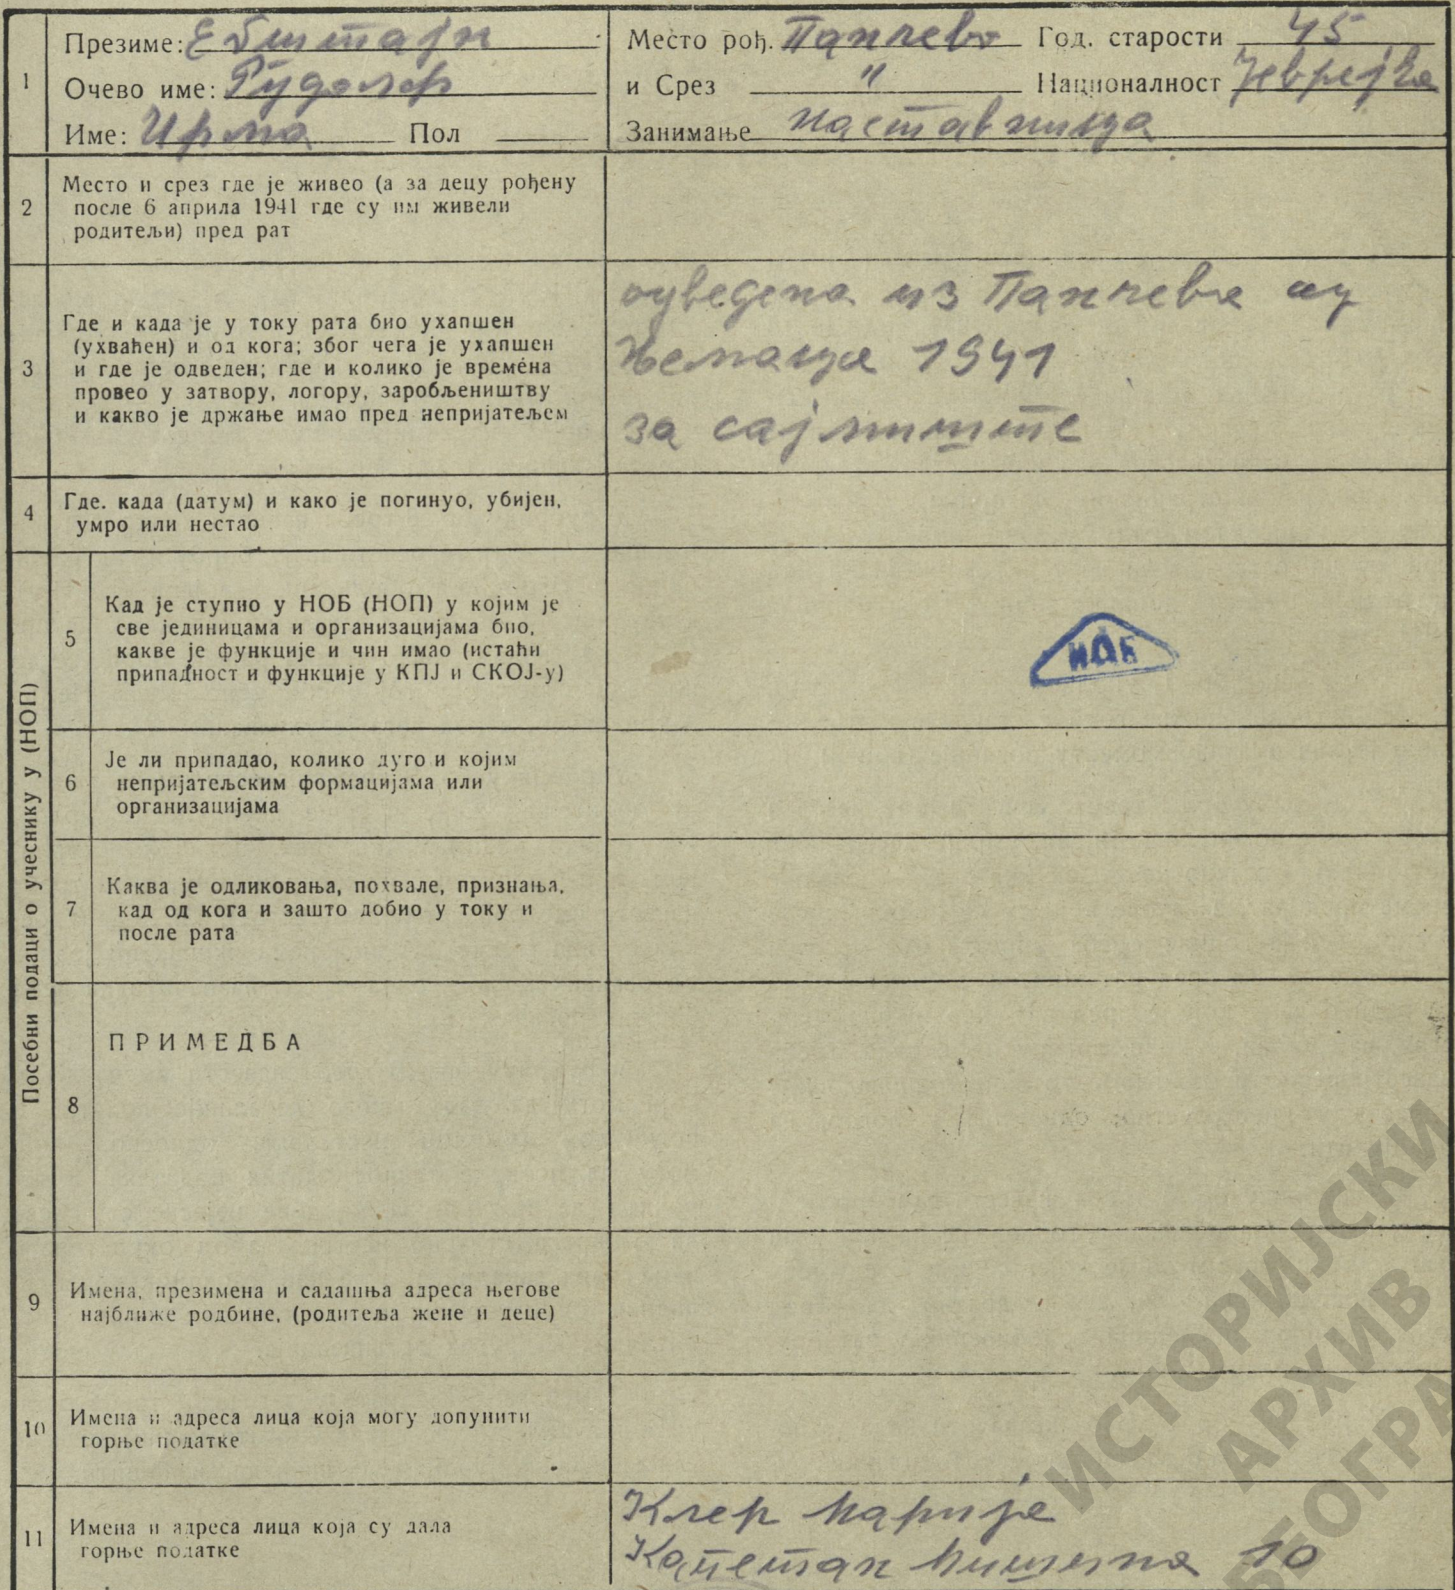 1
Презиме: Ебштајн
Очево име: Рудолф
Име: Ирма Пол
Место рођ. Панчево Год. старости 45
и Срез " Националност Јеврејка
Занимање наставница
2
Место и срез где је живео (а за децу рођену
после 6 априла 1941 где су им живели
родитељи) пред рат
3
Где и када је у току рата био ухапшен
(ухваћен) и од кога; због чега је ухапшен
и где је одведен; где и колико је времена
провео у затвору, логору, заробљеништву
и какво је држање имао пред непријатељем
одведена из Панчева од
Немаца 1941
за сајмиште
4
Где. када (датум) и како је погинуо, убијен,
умро или нестао
Посебни подаци о учеснику у (НОП)
5
Кад је ступио у НОБ (НОП) у којим је
све јединицама и организацијама био,
какве је функције и чин имао (истаћи
припадност и функције у КПЈ и СКОЈ-у)
ИАБ
6
Је ли припадао, колико дуго и којим
непријатељским формацијама или
организацијама
7
Каква је одликовања, похвале, признања,
кад од кога и зашто добио у току и
после рата
8
ПРИМЕДБА
9
Имена, презимена и садашња адреса његове
најближе родбине, (родитеља жене и деце)
10
Имена и адреса лица која могу допунити
горње податке
11
Имена и адреса лица која су дала
горње податке
Клер Марија
Капетан Мишина 10
ИСТОРИЈСКИ
АРХИВ
БЕОГРА